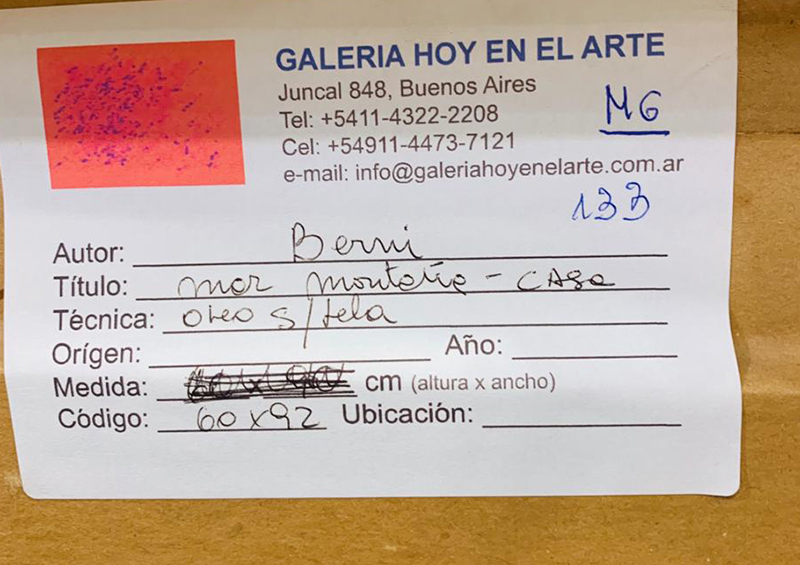 GALERIA HOY EN EL ARTE
Juncal 848, Buenos Aires
Tel: +5411-4322-2208
Cel: +54911-4473-7121
e-mail: info@galeriahoyenelarte.com.ar
MG
133
Autor: Berni
Título: mar montaña - casa
Técnica: oleo s/tela
Orígen: Año:
Medida: cm (altura x ancho)
Código: 60x92 Ubicación: